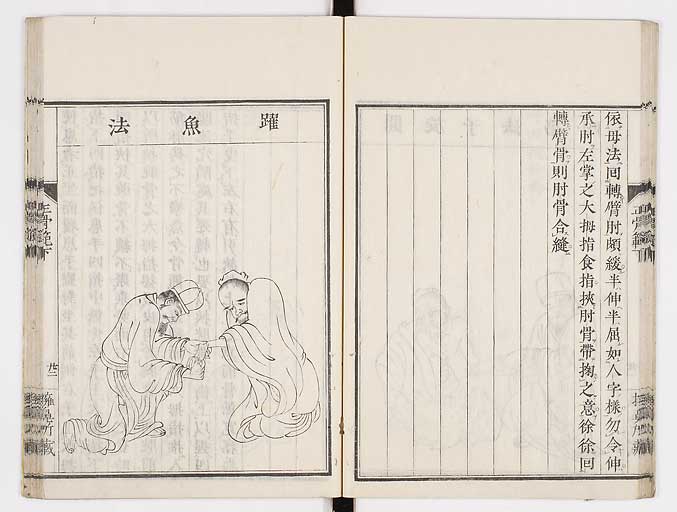 依母法回轉臂肘頗緩半伸半屈如人字樣勿令伸
承肘左掌之大拇指食指挾肘骨帶掬之意徐徐回
轉臂骨則肘骨合縫
躍魚法
正骨範下
廿二